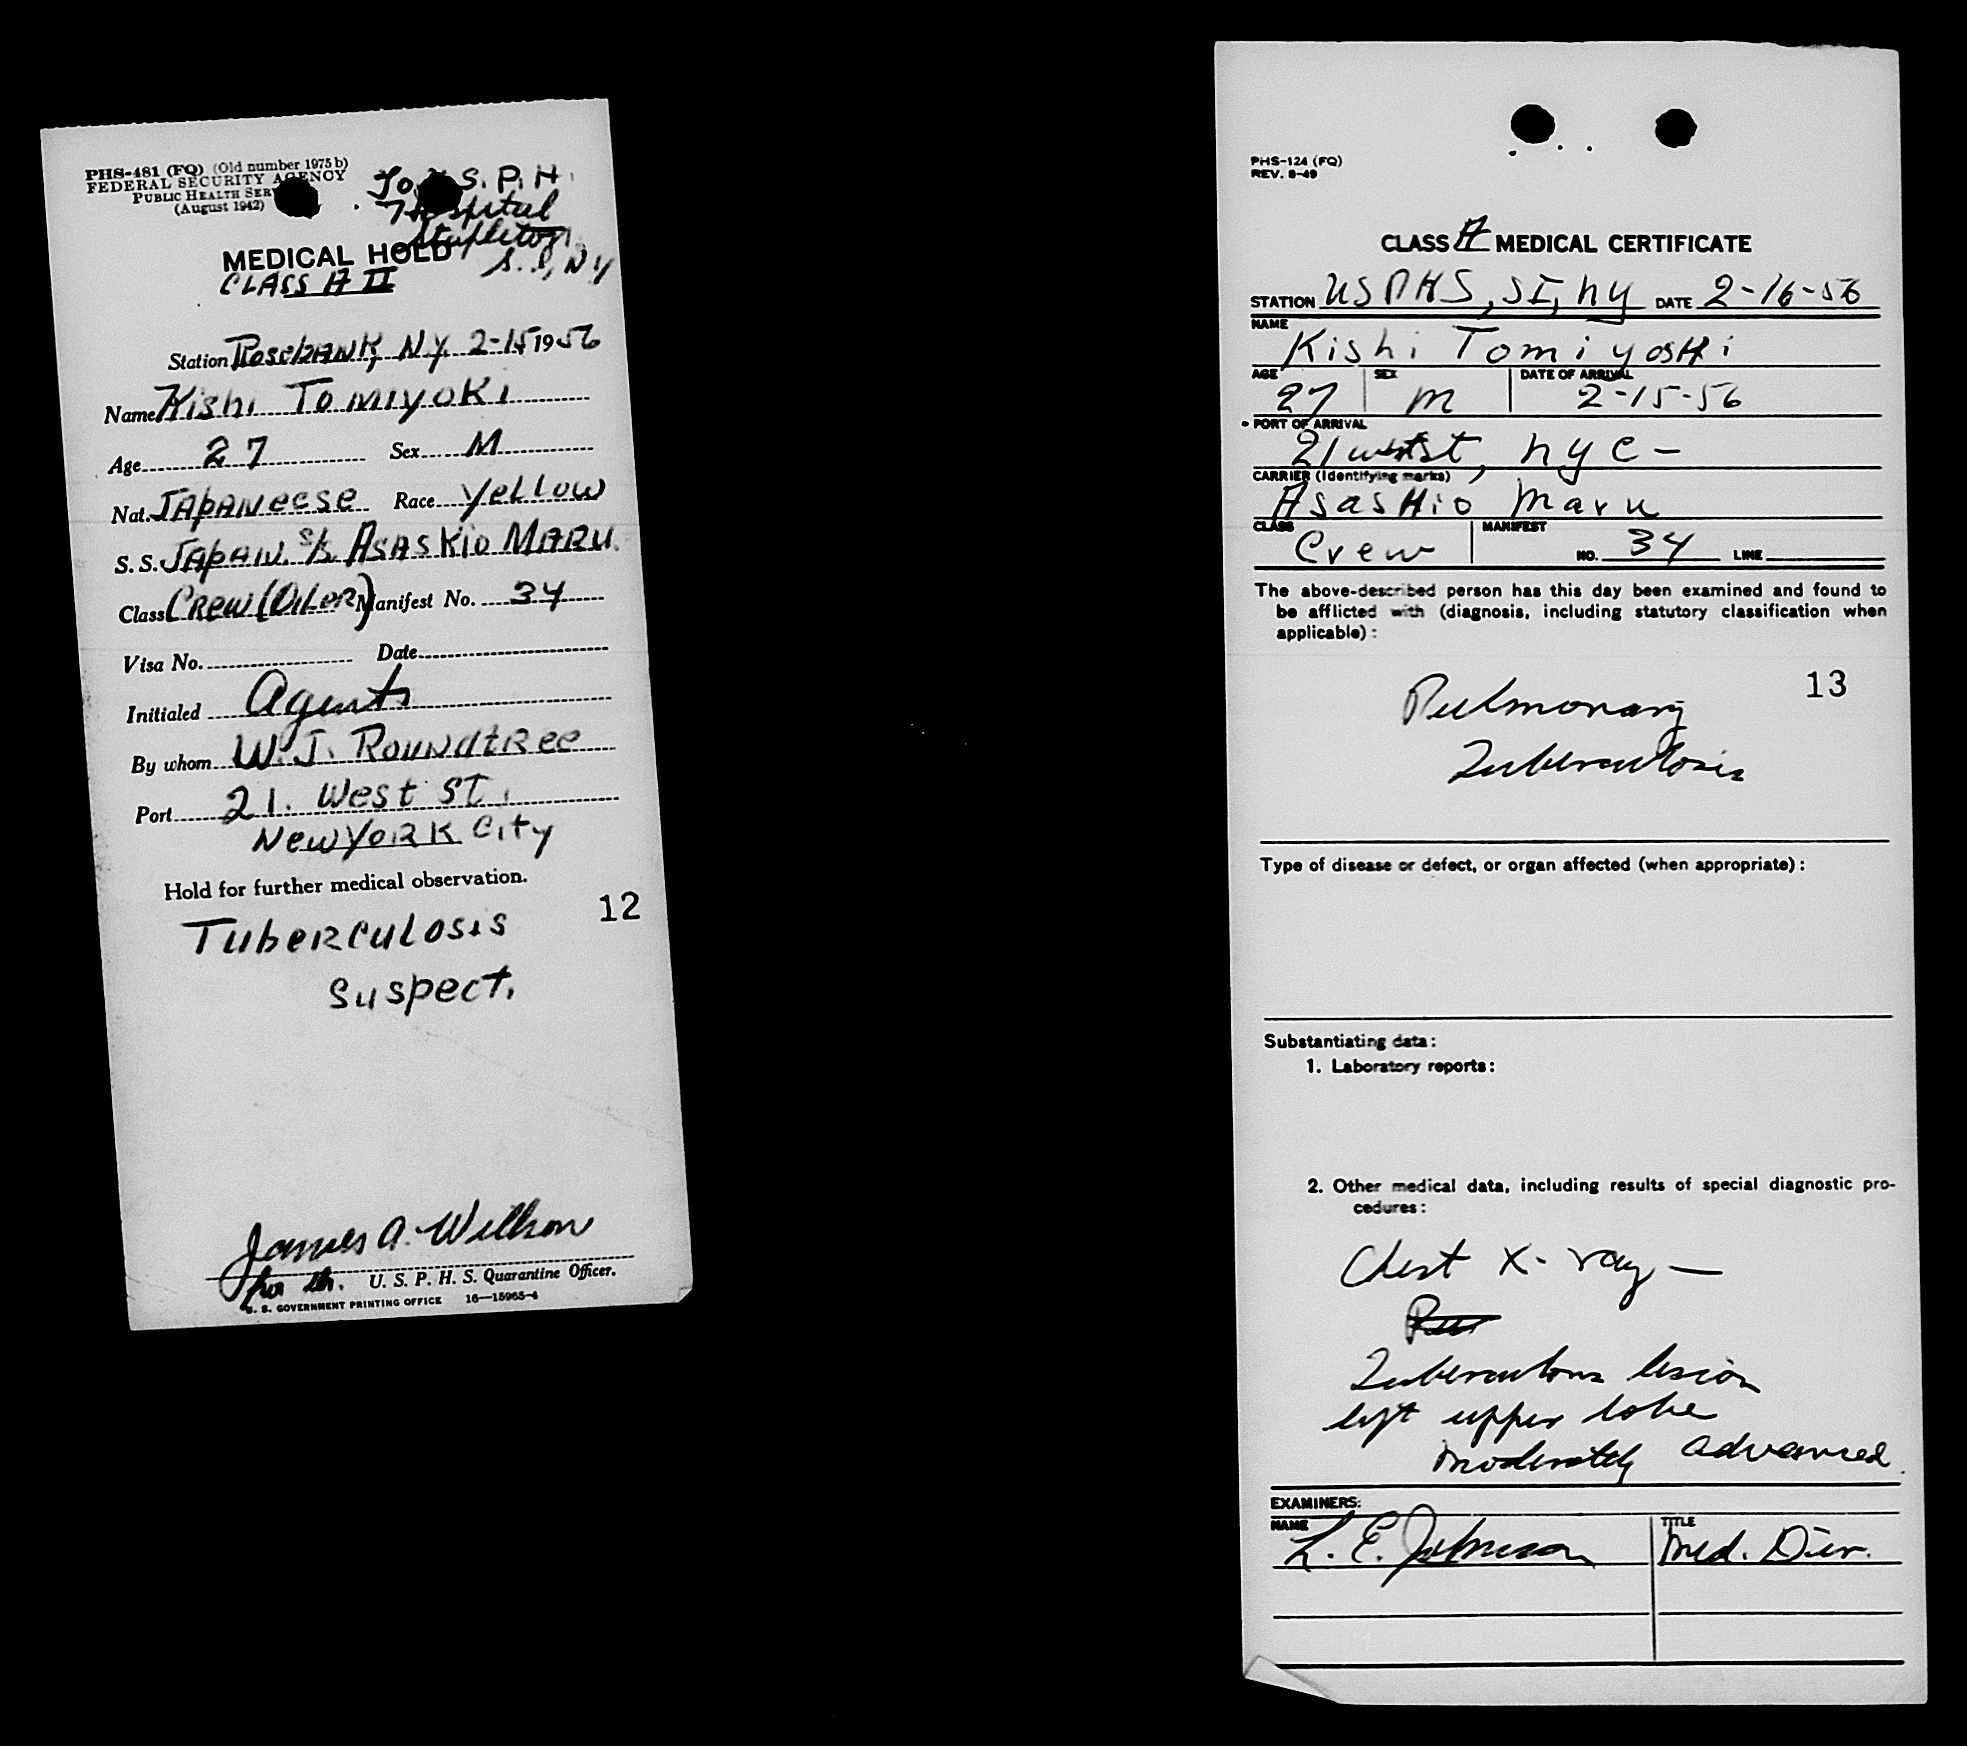 PHS-481 (FQ) (Old number 1975 b)
FEDERAL SECURITY AGENCY
PUBLIC HEALTH SER
(August 1942)
To S. P. H.
Hospital
Stapleton
S. I, N y
MEDICAL HOLD
CLASS A II
Station Rosebank, N.Y. 2-15 1956
Name Kishi TomiyoKi
Age 27 Sex M
Nat. JApaneese Race Yellow
S. S. JApan. S/S AsAsKio MARU.
Class Crew (OiLeR) Manifest No. 34
Visa No. Date
Initialed Agents
By whom W. J. RoundtRee
Port 21. West ST.
New YORK City
Hold for further medical observation.
12
TubeRculosis
Suspect.
James A. Willson
for the. U. S. P. H. S. Quarantine Officer.
U. S. GOVERNMENT PRINTING OFFICE 16—15965-4
PHS-124 (FQ)
REV. 8-49
CLASS A MEDICAL CERTIFICATE
STATION USPHS, SI, NY DATE 2-16-56
NAME
Kishi TomiyosHi
AGE SEX DATE OF ARRIVAL
27 M 2-15-56
PORT OF ARRIVAL
21 West St, NYC -
CARRIER (Identifying marks)
AsasHio Maru
CLASS MANIFEST
Crew NO. 34 LINE
The above-described person has this day been examined and found to
be afflicted with (diagnosis, including statutory classification when
applicable):
13
Pulmonary
Tuberculosis
Type of disease or defect, or organ affected (when appropriate):
Substantiating data:
1. Laboratory reports:
2. Other medical data, including results of special diagnostic pro-
cedures:
Chest X-ray —
Tuberculous lesion
left upper lobe
moderately advanced.
EXAMINERS:
NAME TITLE
L. E. Johnson Med. Dir.